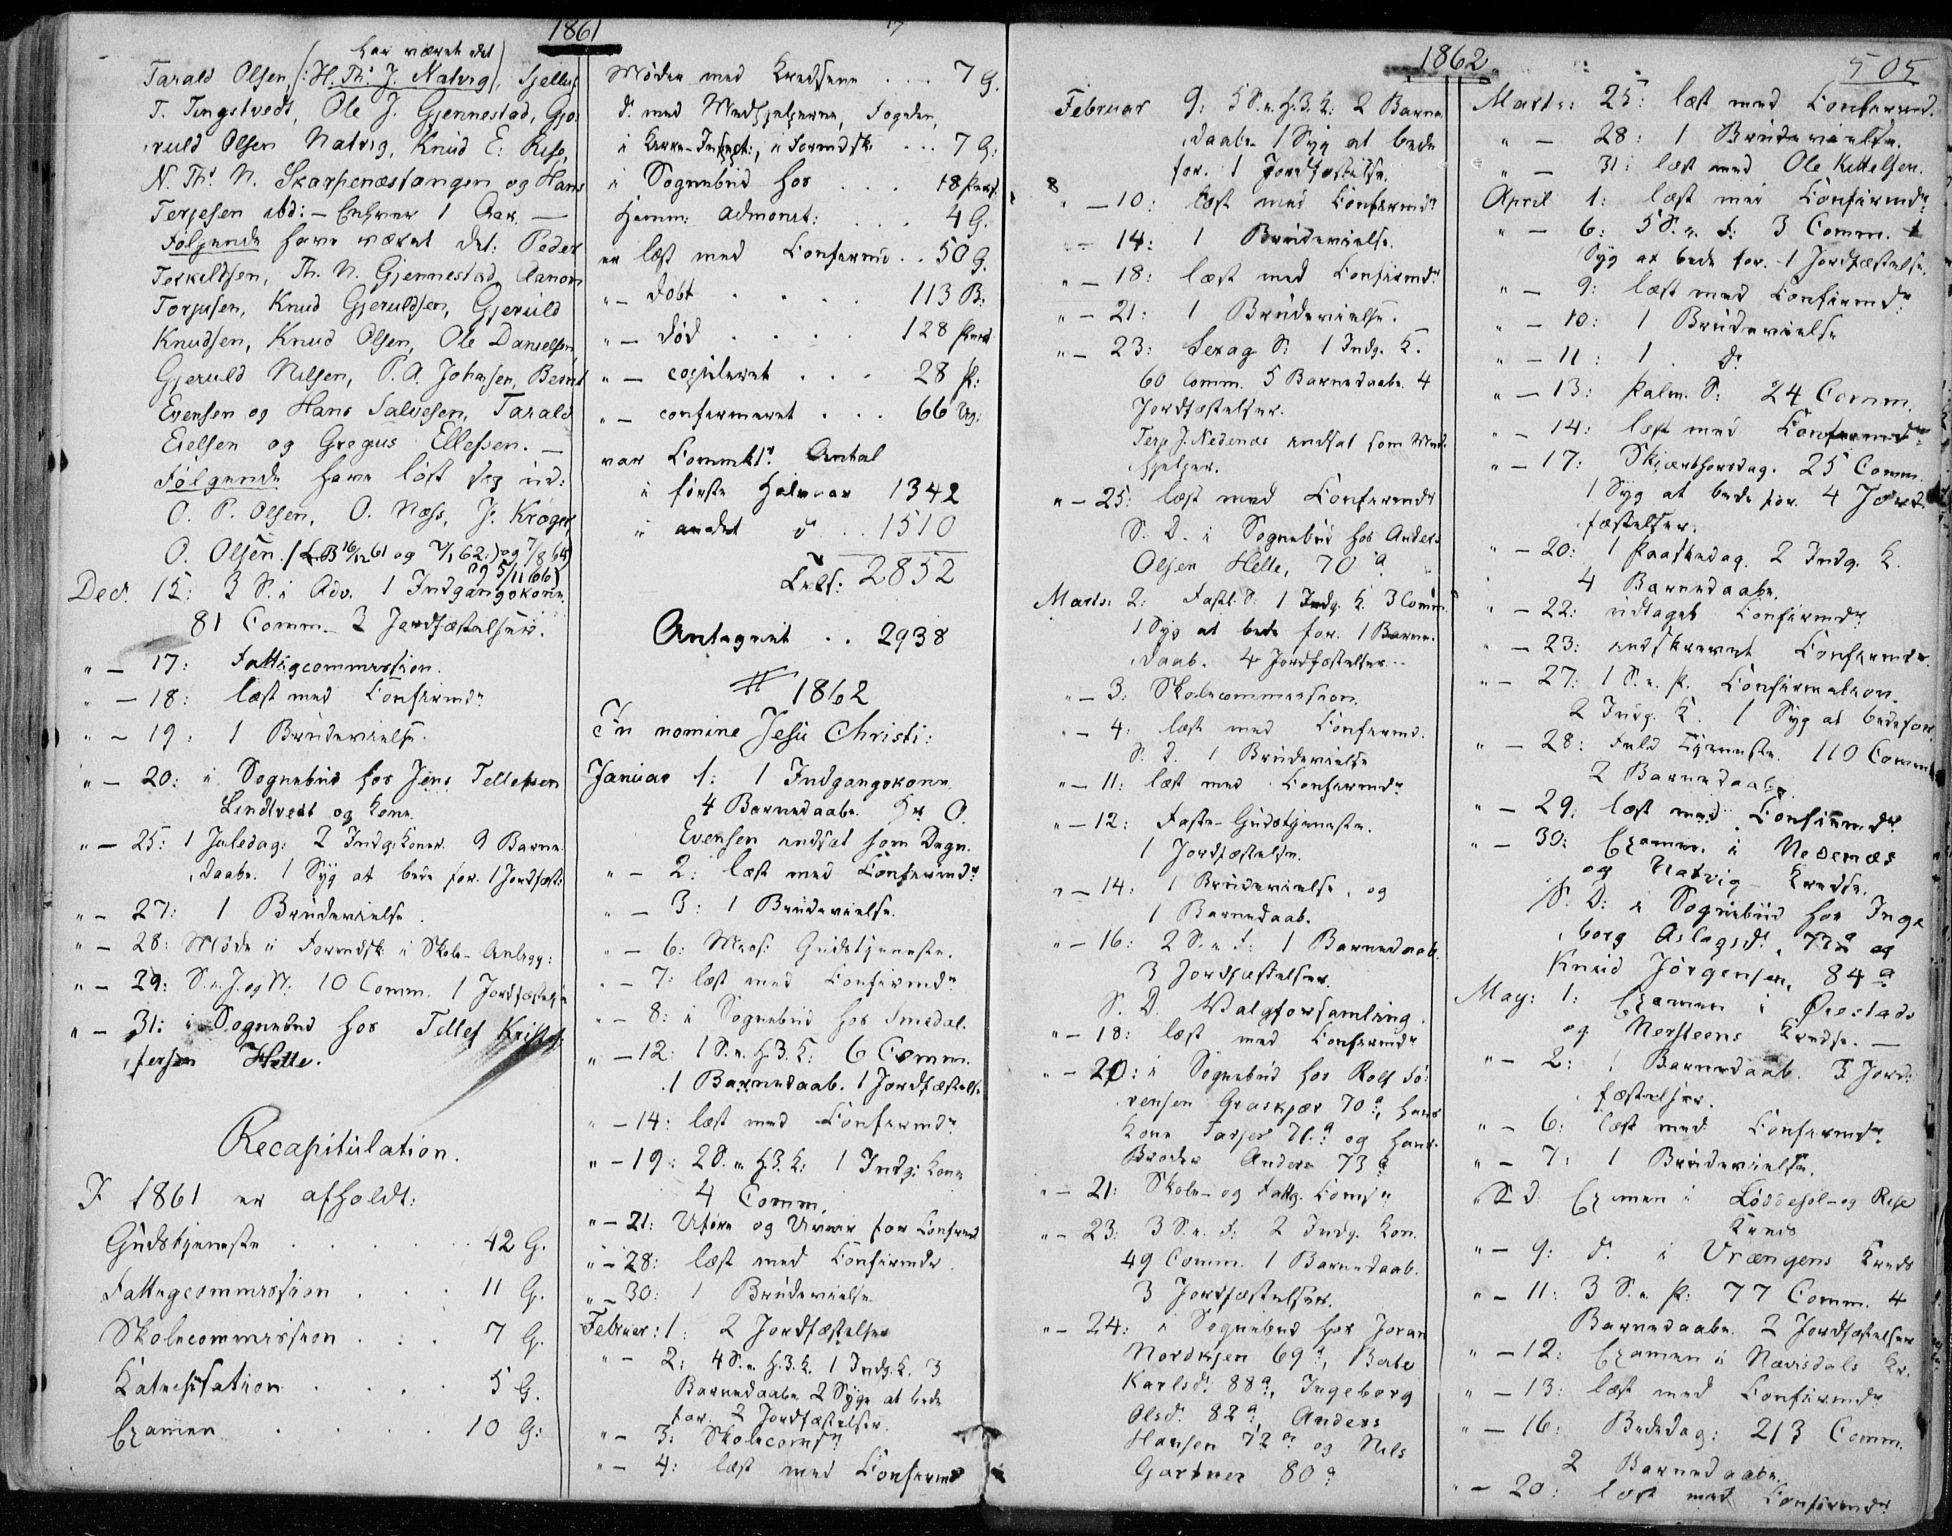 1861
har været det
Tarald Olsen, (: H. Th. J. Natvig), Tjellef
T. Tingstvedt, Ole J. Gjennestad, Gje-
ruld Olsen Natvig, Knud E. Rise,
N. Th. N. Skarpenæstangen og Hans
Terjesen ibd: – Enhver 1 Aar. –
Følgende have været det: Peder
Torkildsen, Th. N. Gjennestad, Aanon
Torjusen, Knud Gjeruldsen, Gjeruld
Knudsen, Knud Olsen, Ole Danielsen
Gjeruld Nilsen, P. A. Johnsen, Bernt
Evensen og Hans Salvesen, Tarald
Eielsen og Gregus Ellefsen. –
Følgende have løst sig ud:
O. P. Olsen, O. Næss, J. Krøger,
O. Olsen.
Decr. 15: 3 S. i Adv. 1 Indgangskone.
81 Comm. 2 Jordfæstelser.
" – 17: Fattigcommission.
" – 18: læst med Confirmdr
" – 19: 1 Brudevielse.
" – 20: i Sognebud hos Jens Tellefsen
Lindtvedt og Kone
" – 25: 1 Juledag: 2 Indg: Koner. 9 Barne-
daabe. 1 Syg at bede for. 1 Jordfæst:
" – 27: 1 Brudevielse.
" – 28: Møde i Formdsk. i Skole-Anligg:
" – 29: S. e. J. og N. 10 Comm. 1 Jordfæstelse
" – 31: i Sognebud hos Tellef Kristof-
fersen Helle.
Recapitulation.
I 1861 er afholdt:
Gudstjeneste . . . . 42 G.
Fattigcommission . . . 11 G.
Skolecommission . . . 7 G.
Katechisation . . . . 5 G.
Examen . . . . 10 G:
Møder med Kredsene . . . 7 G.
d. med Medhjelperne, Fogden,
i Formdsk. . . . 7 G:
i Sognebud hos . . . 18 Pers.
Hemm: admonit: . . . 4 G.
er læst med Confirmd . . 50 G.
" – døbt . . . . 113 B:
" – død . . . . 128 Pers
" – copuleret . . . 28 P:
" – confirmeret . . . 66 Ug:
var Commktr. Antal
i første Halvaar 1342
i andet d . . 1510
Tils: 2852
Antegnet . . 2938
1862
In nomine Jesu Christi:
Januar 1: 1 Indgangskone
4 Barnedaabe. Hr O.
Evensen indsat som Degn.
" – 2: læst med Confirmdr
" – 3: 1 Brudevielse.
" – 6: Miss: Gudstjeneste.
" – 7: læst med Confirmdr
" – 8: i Sognebud hos Smedal.
" – 12: 1 S. e. H. 3. K: 6 Comm.
1 Barnedaab. 1 Jordfæstelse
" – 14: læst med Confirmdr
" – 19: 2 S. e. H. 3. K: 1 Indg: Kone
4 Comm.
" – 21: Uføre og Uveir for Confirmd
" – 28: læst med Confirmdr.
" – 30: 1 Brudevielse
Februar: 1: 2 Jordfæstelser
" – 2: 4 S. e. H. 3. K. 1 Indg. K. 3
Barnedaabe 2 Syge at bede
for. 2 Jordfæstelser.
" – 3: Skolecomsn
" – 4: læst med Confirmd
1862
505
Februar 9: 5 S. e. H. 3. K: 2 Barne-
daabe 1 Syg at bede
for. 1 Jordfæstelse.
" – 10: læst med Confirmdr
" – 14: 1 Brudevielse.
" – 18: læst med Confirmdr
" – 21: 1 Brudevielse.
" – 23: Sexag S: 1 Indg. K.
60 Comm. 5 Barnedaabe. 4
Jordfæstelser.
Terje J. Nedenæs indsat som Med-
hjelper.
" – 25: læst med Confirmdr
S. D. i Sognebud hos Anders
Olsen Helle, 70 a.
Marts: 2: Fastl. S: 1 Indg. K. 3 Comm.
1 Syg at bede for. 1 Barne-
daab. 4 Jordfæstelser.
" – 3: Skolecommission.
" – 4: læst med Confirmd.
S. D. 1 Brudevielse
" – 11: læst med Confirmdr
" – 12: Faste-Gudstjeneste.
1 Jordfæstelse.
" – 14: 1 Brudevielse, og
1 Barnedaab.
" – 16: 2 S. e F: 1 Barnedaab.
3 Jordfæstelser.
S. D. Valgforsamling.
" – 18: læst med Confirmdr
" – 20: i Sognebud hos Rolf Sø-
rensen Graskjær 70 a, hans
Kone 71 a og hans
Broder Anders 73 a
" – 21: Skole- og Fattg. Comsn
" – 23: 3 S. e. F: 2 Indg. Kon.
49 Comm. 1 Barnedaab.
3 Jordfæstelser.
" – 24: i Sognebud hos Joran
Nordkjen 69 a, Berte
Karlsd. 88 a, Ingeborg
Olsd. 82 a, Anders
Hansen 72 a og Nils
Gartner 80 a
Marts: 25: læst med Confirmd.
" – 28: 1 Brudevielse.
" – 31: læst med Ole Kittelsen.
April 1: læst med Confirmdr
" – 6: 5 S. e. F: 3 Comm. 1
Syg at bede for. 1 Jordfæstelse.
" – 9: læst med Confirmdr
" – 10: 1 Brudevielse
" – 11: 1 d.
" – 13: Palm. S: 24 Comm.
" – 14: læst med Confirmdr
" – 17: Skjærthorsdag. 25 Comm.
1 Syg at bede for. 4 Jord-
fæstelser.
" – 20: 1 Paaskedag. 2 Indg. K.
4 Barnedaabe.
" – 22: udtaget Confirmdr
" – 23: indskrevet Confirmdr.
" – 27: 1 S. e. P. Confirmation.
2 Indg. K. 1 Syg at bede for.
" – 28: Fuld Tjeneste. 110 Comm
2 Barnedaabe.
" – 29: læst med Confirmdr
" – 30: Examen i Nedenæs
og Natvig Kredse.
S. D: i Sognebud hos Inge-
borg Aslagsd. 77 a og
Knud Jörgensen, 84 a
May: 1: Examen i Ørestads
og Mersteens Kredse. –
" – 2: 1 Barnedaab. 3 Jord-
fæstelser.
" – 6: læst med Confirmdr
" – 7: 1 Brudevielse.
S. d. Examen i Løddesøl- og Rise
Kreds
" – 9: d. i Vrængens Kreds
" – 11: 3 S. e. P: 77 Comm. 4
Barnedaabe. 2 Jordfæstelser
" – 12: Examen i Nævisdals Kr.
" – 13: læst med Confirmdr
" – 16: Bededag: 213 Comm.
2 Barnedaabe.
" – 20: læst med Confirmdr